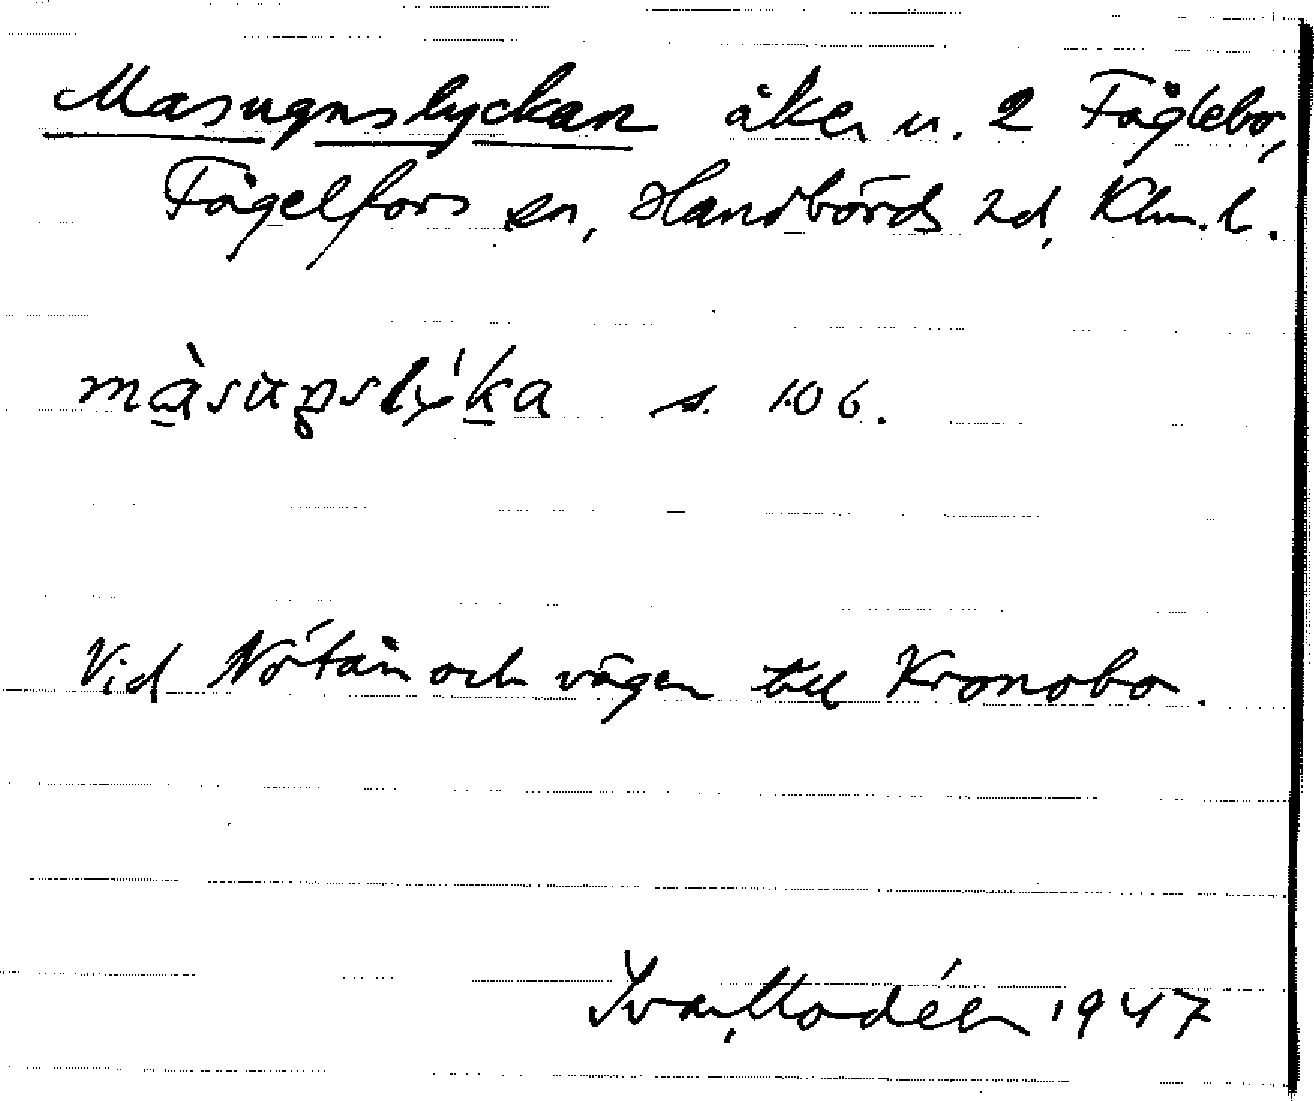 Masugnslyckan åker u. 2 Fåglebo,
Fågelfors sn, Handbörds hd, Klm. l.
s. 106.
Vid Nötån och vägen till Kronobo.
Ivar Modéer 1947